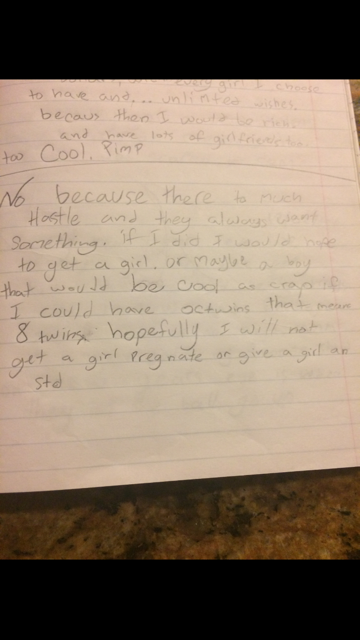 every girl I choose
to have and... unlimited wishes.
becaus then I would be rich.
and have lots of girlfriends too
too Cool. Pimp
No because there to much
Hastle and they always want
something. if I did I would hope
to get a girl. or maybe a boy
that would be cool as crap if
I could have octwins that mean
8 twins hopefully I will not
get a girl Pregnate or give a girl an
std